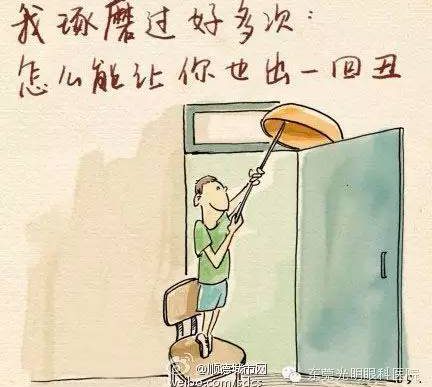 我琢磨过好多次:
怎么能让你也出一回丑
@顺德城市网
weibo.com/sdcs
东莞光明眼科医院